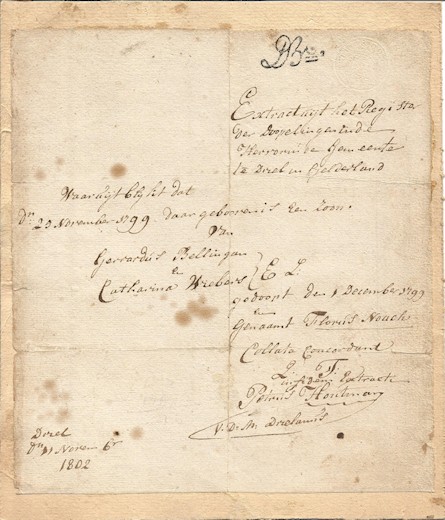 Extract uyt het Register
der Doopelingen in de
Hervormde Gemeente
te Driel in Gelderland
Waar uyt blykt dat
dn 23 November 1799. daar gebooren is Een Zoon.
Van
Gerrardus Bellingan
en
Catharina Wiebers
E L.
gedoopt den 1 December 1799
en
Genaamt Florus Nouchs
Collata Concordant
Extract
Petrus Houtman
V. D. M.
Driel
dn 11 Novemb
1802